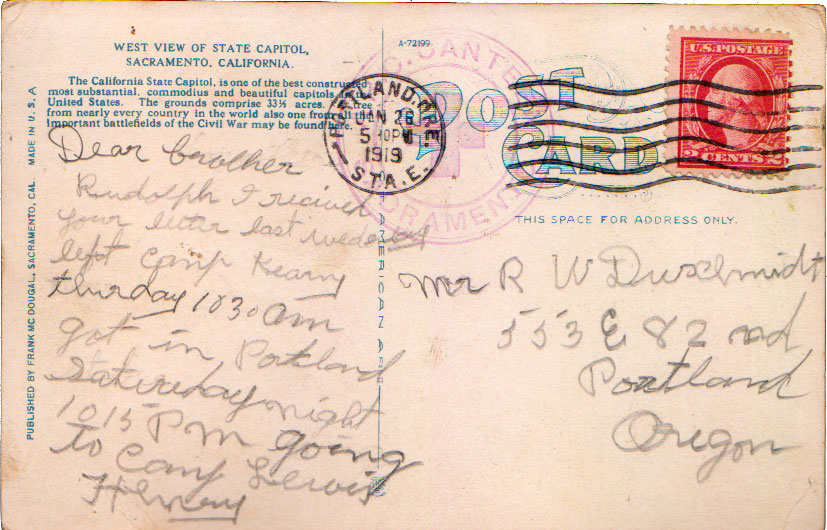 WEST VIEW OF STATE CAPITOL,
SACRAMENTO, CALIFORNIA.
The California State Capitol, is one of the best constructed
most substantial, commodius and beautiful capitols in the
United States. The grounds comprise 33⅓ acres. A tree
from nearly every country in the world also one from all the
important battlefields of the Civil War may be found here.
Dear brother
Rudolph I recived
your letter last wedesday
left Camp Kearny
thurday 10 30 am
got in Portland
Saturday night
10 15 PM going
to Camp Lewis
Henry
PUBLISHED BY FRANK MC DOUGAL, SACRAMENTO, CAL. MADE IN U.S.A
A-72199
POST
CARD
CANTE
SACRAMENTO
AMERICAN AR
PORTLAND, ORE.
JAN 26
5 PM
1919
STA. E.
U.S. POSTAGE
2 CENTS 2
THIS SPACE FOR ADDRESS ONLY.
Mr R W Duschmidt
553 E 82 nd
Portland
Oregon